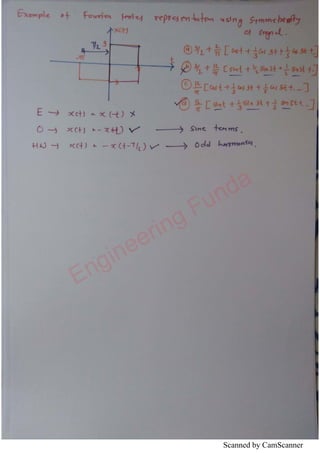 Example of Fourier series representation using Symmetricity
of signal.
x(t)
T/2 3
-π t
(a) 3/2 + 6/π [cost + 1/3 cos 3t + 1/5 cos 5t + ..]
(b) 3/2 + 12/π [sint + 1/3 sin3t + 1/5 sin5t + ..]
(c) 12/π [cost + 1/3 cos 3t + 1/5 cos 5t + ..]
(d) 12/π [sint + 1/3 sin 3t + 1/5 sin5t + ..]
E → x(t) = x(-t) ×
O → x(t) = -x(-t) ✓ → Sine terms.
HW → x(t) = -x(t-T/2) ✓ → Odd harmonics.
Engineering Funda
Scanned by CamScanner